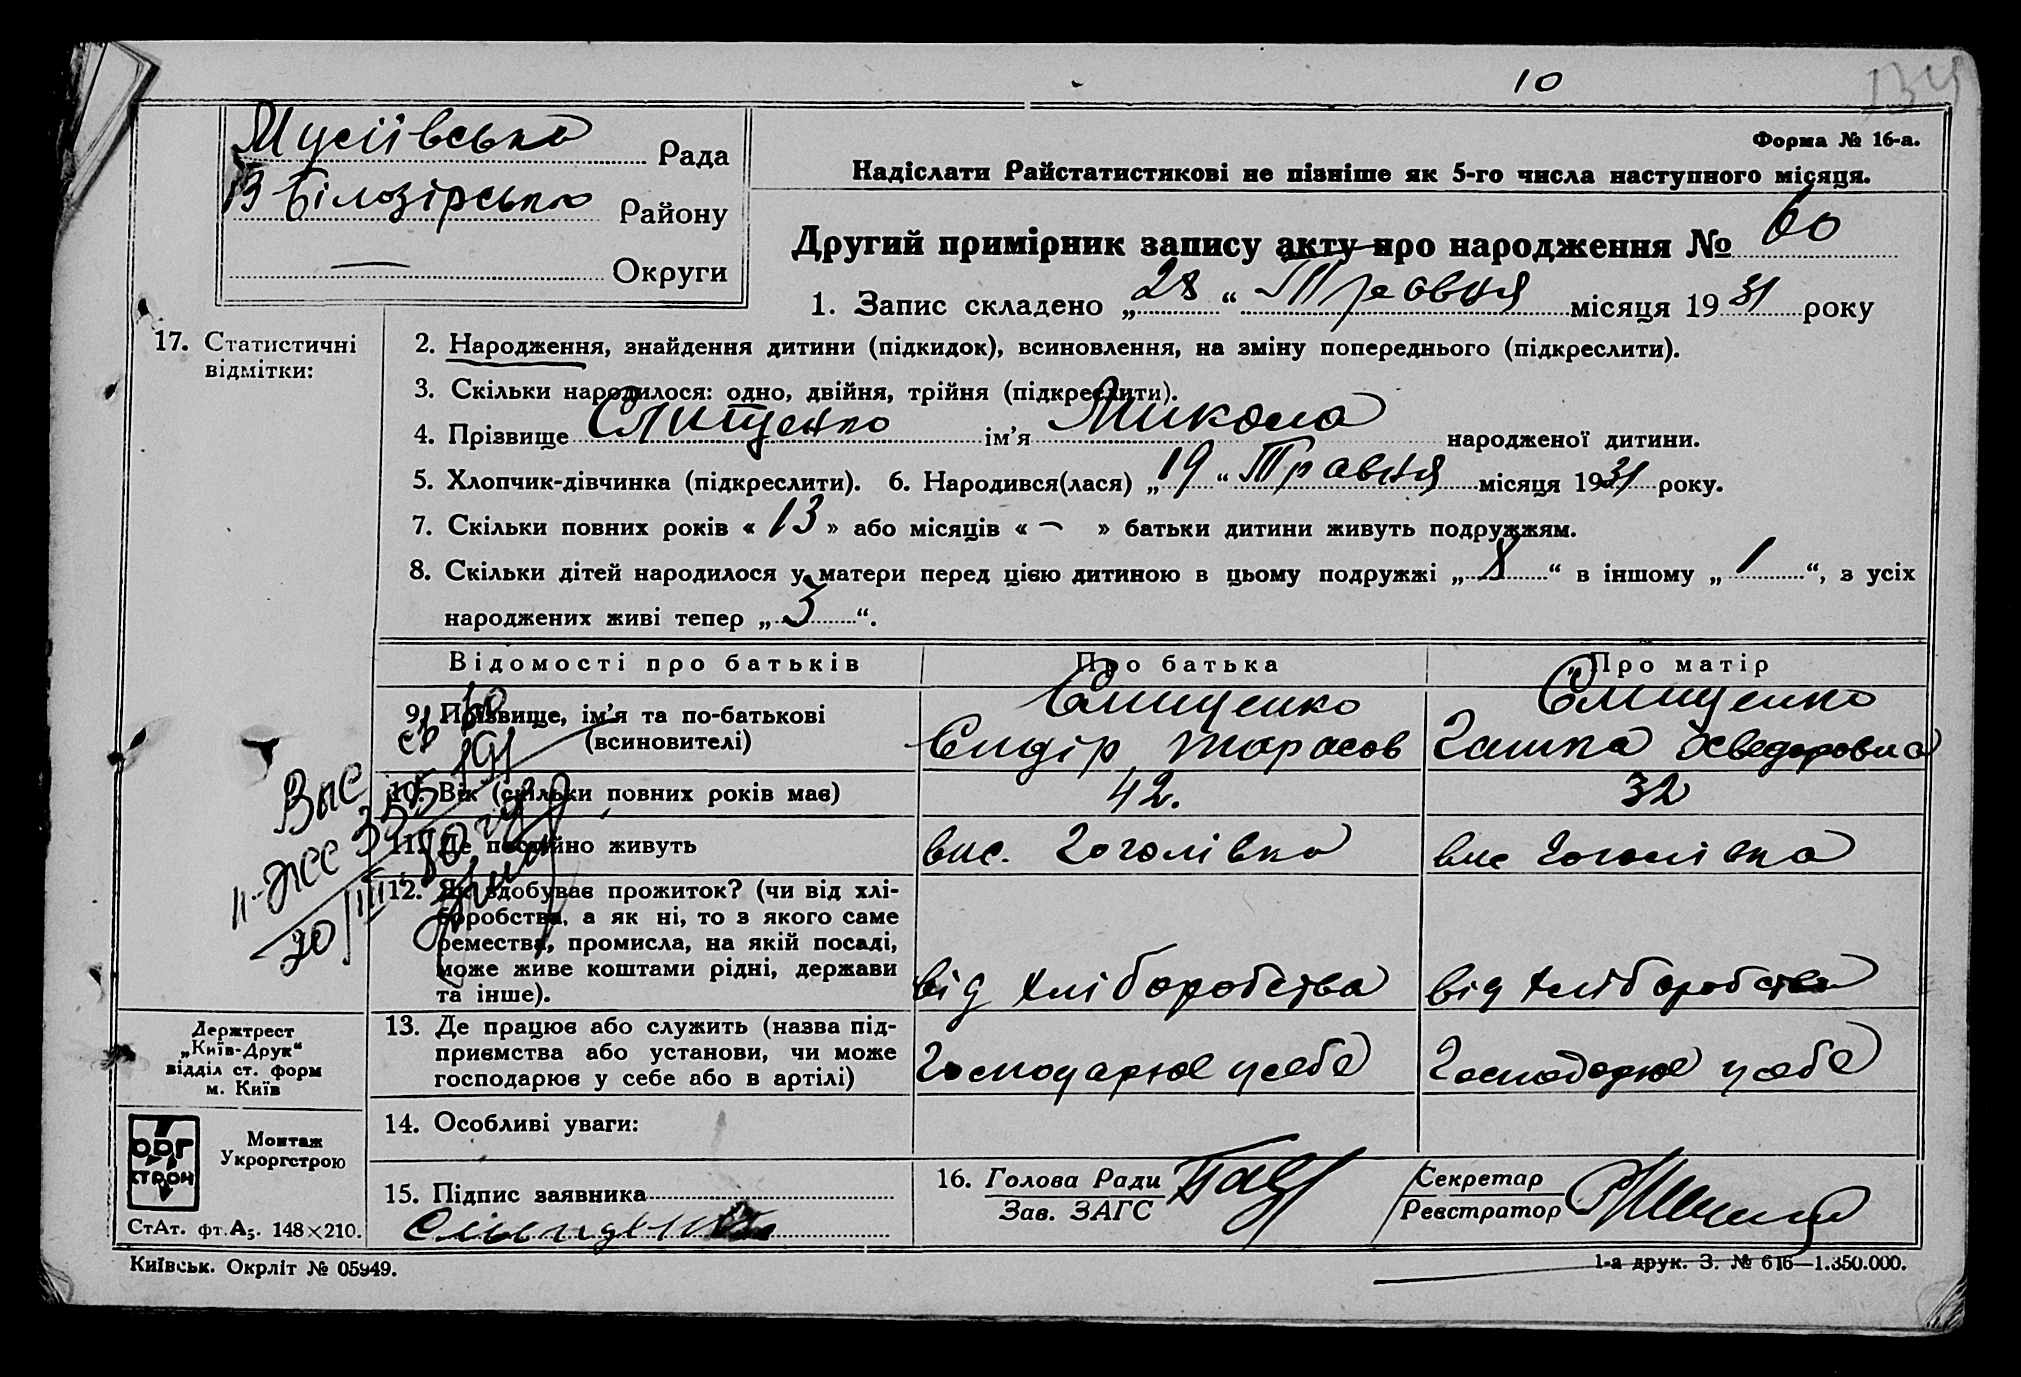 10
134
Мусіївська Рада
В Білозірсько Району
— Округи
Форма № 16-а.
Надіслати Райстатистикові не пізніше як 5-го числа наступного місяця.
Другий примірник запису акту про народження № 60
1. Запис складено „28“ Травня місяця 1931 року
17. Статистичні
відмітки:
2. Народження, знайдення дитини (підкидок), всиновлення, на зміну попереднього (підкреслити).
3. Скільки народилося: одно, двійня, трійня (підкреслити).
4. Прізвище Слищенко ім’я Микола народженої дитини.
5. Хлопчик-дівчинка (підкреслити). 6. Народився(лася) „19“ Травня місяця 1931 року.
7. Скільки повних років «13» або місяців «—» батьки дитини живуть подружжям.
8. Скільки дітей народилося у матери перед цією дитиною в цьому подружжі „8“ в іншому „1“, з усіх
народжених живі тепер „3“.
Відомості про батьків Про батька Про матір
9. Прізвище, ім’я та по-батькові
(всиновителі)
Слищенко
Сидір Тарасов
Слищенко
Гашка
10. Вік (скільки повних років має) 42. 32
11. Де постійно живуть вис. Гоголівка вис Гоголівка
12. Як здобуває прожиток? (чи від хлі-
боробства, а як ні, то з якого саме
ремества, промисла, на якій посаді,
може живе коштами рідні, держави
та інше).
від хліборобства від хліборобства
13. Де працює або служить (назва під-
приємства або установи, чи може
господарює у себе або в артілі)
Господарює усебе Господорює усебе
14. Особливі уваги:
15. Підпис заявника
16. Голова Ради
Зав. ЗАГС
Секретар
Реєстратор
Держтрест
„Київ-Друк“
відділ ст. форм
м. Київ
ОРГ
СТРОМ
Монтаж
Укроргстрою
СтАт. фт. А5. 148×210.
Київськ. Окрліт № 05949.
1-а друк. З. № 616—1.350.000.